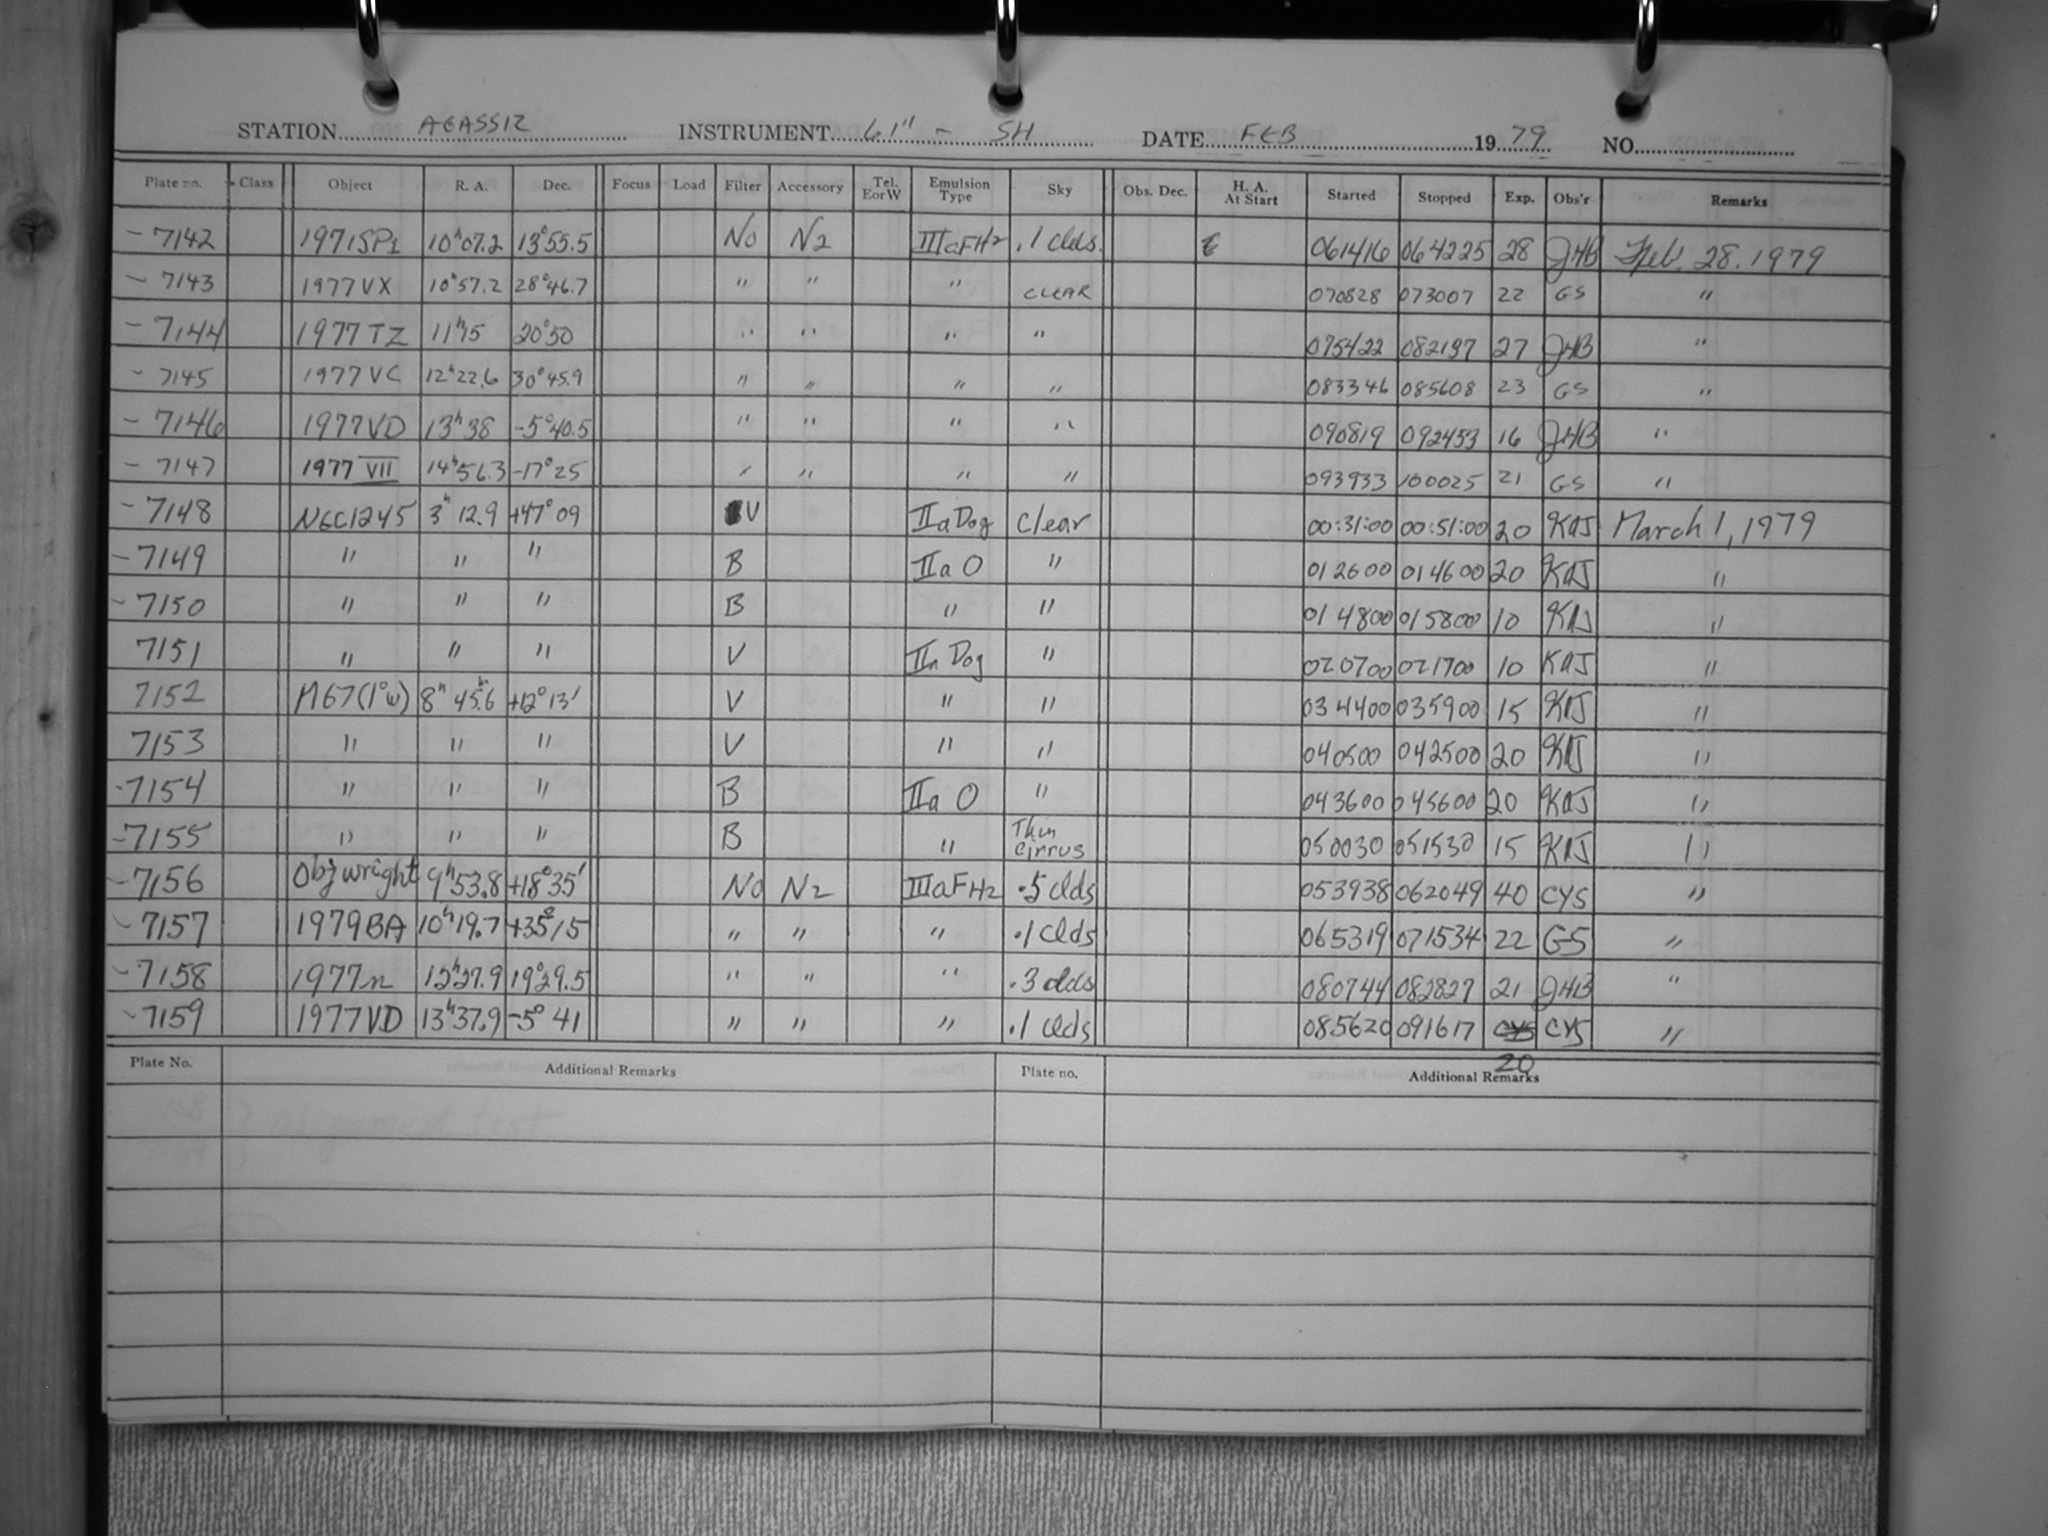 STATION AGASSIZ INSTRUMENT 61" - SH DATE FEB 1979 NO.
Plate no. Class Object R. A. Dec. Focus Load Filter Accessory Tel. E or W Emulsion Type Sky Obs. Dec. H. A. At Start Started Stopped Exp. Obs'r Remarks
- 7142 1971SP1 10h07.2 13°55.5 No N2 IIIaFH2 .1 clds. E 061416 064225 28 JHB Feb. 28. 1979
- 7143 1977VX 10h57.2 28°46.7 " " " CLEAR 070828 073007 22 GS "
- 7144 1977TZ 11h15 20°50 " " " " 075422 082137 27 JHB "
- 7145 1977VC 12h22.6 30°45.9 " " " " 083346 085608 23 GS "
- 7146 1977VD 13h38 -5°40.5 " " " " 090819 092453 16 JHB "
- 7147 1977 VII 14h56.3 -17°25 " " " " 093933 100025 21 GS "
- 7148 NGC1245 3h 12.9 +47°09 V IIaDog Clear 00:31:00 00:51:00 20 KAJ March 1, 1979
- 7149 " " " B IIa O " 012600 014600 20 KAJ "
- 7150 " " " B " " 014800 015800 10 KAJ "
7151 " " " V IIa Dog " 020700 021700 10 KAJ "
7152 M67(1°w) 8h 45.6 +12°13' V " " 034400 035900 15 KAJ "
7153 " " " V " " 040500 042500 20 KAJ "
- 7154 " " " B IIa O " 043600 045600 20 KAJ "
- 7155 " " " B " Thin cirrus 050030 051530 15 KAJ "
- 7156 Obj wright 9h53.8 +18°35' No N2 IIIaFH2 .5 clds 053938 062049 40 CYS "
- 7157 1979BA 10h19.7 +35°15 " " " .1 clds 065319 071534 22 GS "
- 7158 1977n 12h27.9 19°29.5 " " " .3 clds 080744 082827 21 JHB "
- 7159 1977VD 13h37.9 -5°41 " " " .1 clds 085620 091617 CYS CYS "
20
Plate No. Additional Remarks Plate no. Additional Remarks